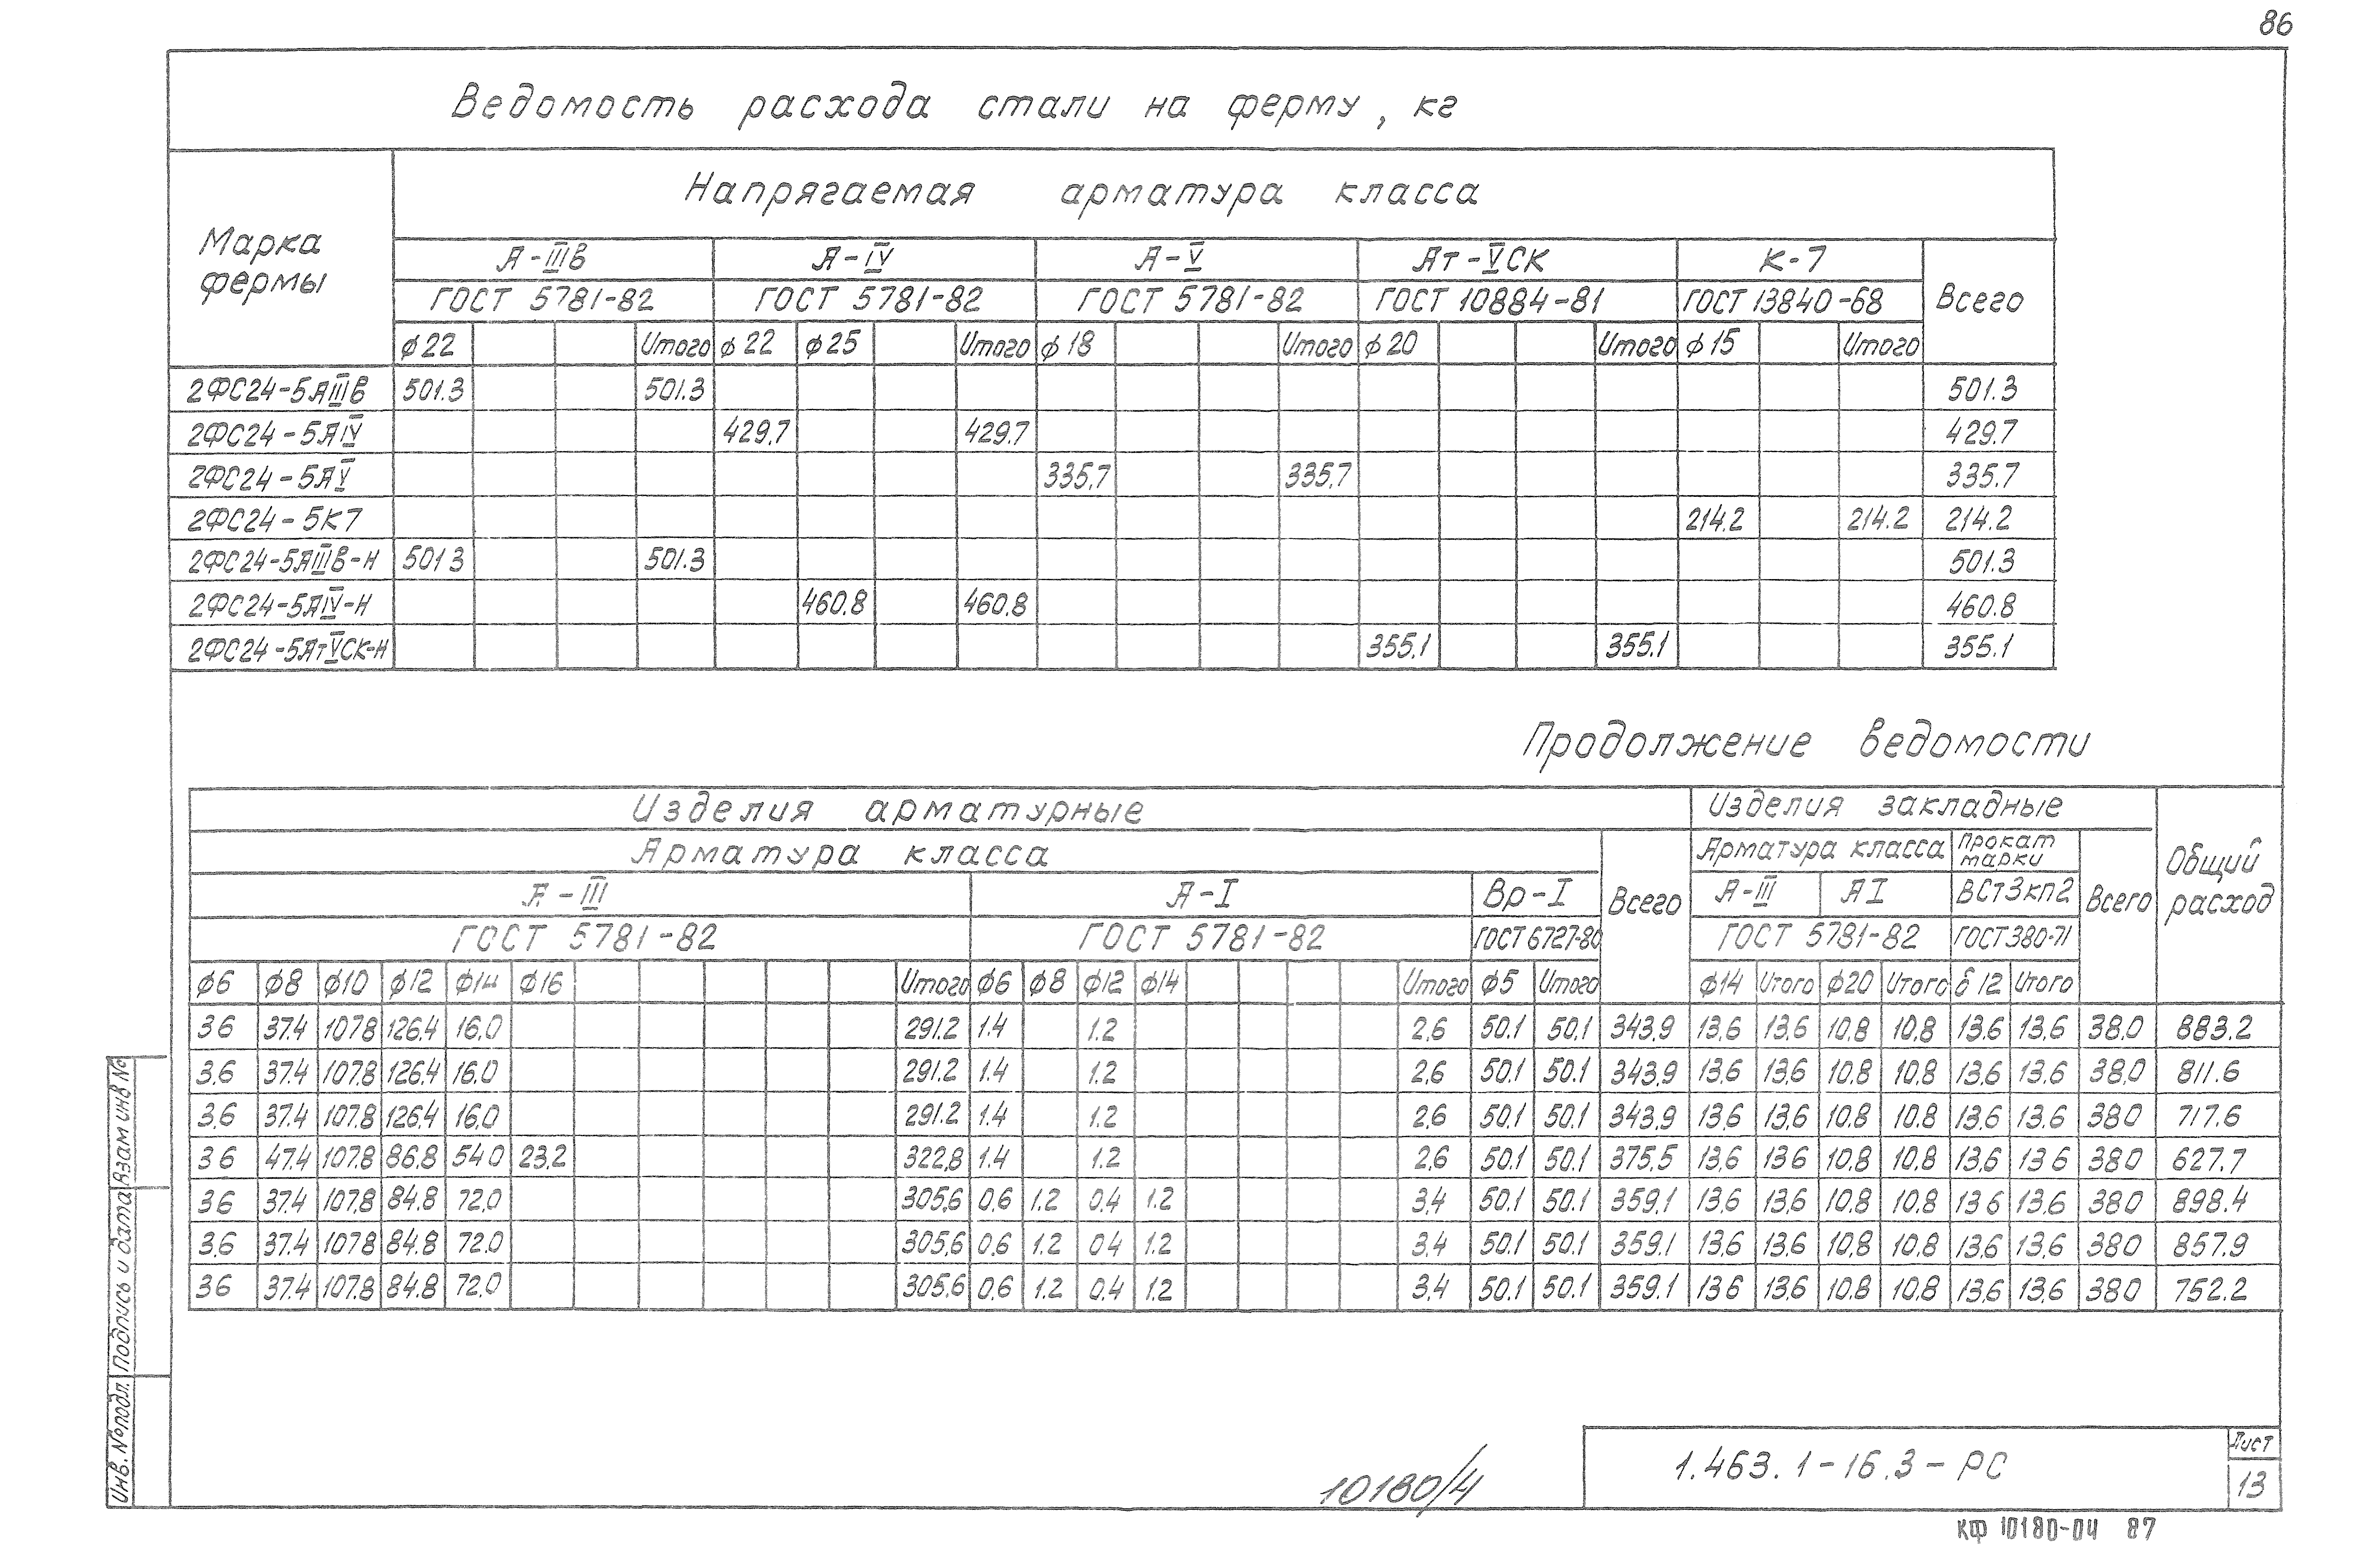 86
Ведомость расхода стали на ферму, кг
Марка фермы
Напрягаемая арматура класса
А-IIIв А-IV А-V Ат-VСК К-7 Всего
ГОСТ 5781-82 ГОСТ 5781-82 ГОСТ 5781-82 ГОСТ 10884-81 ГОСТ 13840-68
ϕ22 Итого ϕ22 ϕ25 Итого ϕ18 Итого ϕ20 Итого ϕ15 Итого
2ФС24-5АIIIв 501.3 501.3 501.3
2ФС24-5АIV 429.7 429.7 429.7
2ФС24-5АV 335.7 335.7 335.7
2ФС24-5К7 214.2 214.2 214.2
2ФС24-5АIIIв-Н 501 3 501.3 501.3
2ФС24-5АIV-Н 460.8 460.8 460.8
2ФС24-5АтVСК-Н 355.1 355.1 355.1
Продолжение ведомости
Изделия арматурные Изделия закладные Общий расход
Арматура класса Всего Арматура класса Прокат марки Всего
А-III А-I Вр-I А-III АI ВСт3кп2
ГОСТ 5781-82 ГОСТ 5781-82 ГОСТ 6727-80 ГОСТ 5781-82 ГОСТ 380-71
ϕ6 ϕ8 ϕ10 ϕ12 ϕ14 ϕ16 Итого ϕ6 ϕ8 ϕ12 ϕ14 Итого ϕ5 Итого ϕ14 Итого ϕ20 Итого δ12 Итого
3 6 37.4 107 8 126.4 16.0 291.2 1.4 1.2 2,6 50.1 50.1 343.9 13.6 13.6 10.8 10.8 13.6 13.6 38.0 883.2
3.6 37.4 107.8 126.4 16.0 291.2 1.4 1.2 2.6 50.1 50.1 343.9 13.6 13.6 10.8 10.8 13.6 13.6 38.0 811.6
3.6 37.4 107.8 126.4 16.0 291.2 1.4 1.2 2.6 50.1 50.1 343.9 13.6 13.6 10.8 10.8 13.6 13.6 38 0 717.6
3 6 47.4 107.8 86.8 54 0 23.2 322.8 1.4 1.2 2.6 50.1 50.1 375.5 13.6 13 6 10.8 10.8 13.6 13 6 38 0 627.7
3 6 37.4 107.8 84.8 72.0 305.6 0.6 1.2 0.4 1.2 3.4 50.1 50.1 359.1 13.6 13.6 10.8 10.8 13 6 13.6 38 0 898.4
3.6 37.4 107 8 84.8 72.0 305.6 0.6 1.2 0 4 1.2 3.4 50.1 50.1 359.1 13.6 13.6 10.8 10.8 13.6 13.6 38 0 857.9
3 6 37.4 107.8 84.8 72.0 305.6 0.6 1.2 0.4 1.2 3.4 50.1 50.1 359.1 13 6 13.6 10.8 10.8 13.6 13.6 38 0 752.2
Инв. № подл. Подпись и дата Взам инв №
10180/4
1.463.1-16.3-РС
Лист
13
КФ 10180-04 87